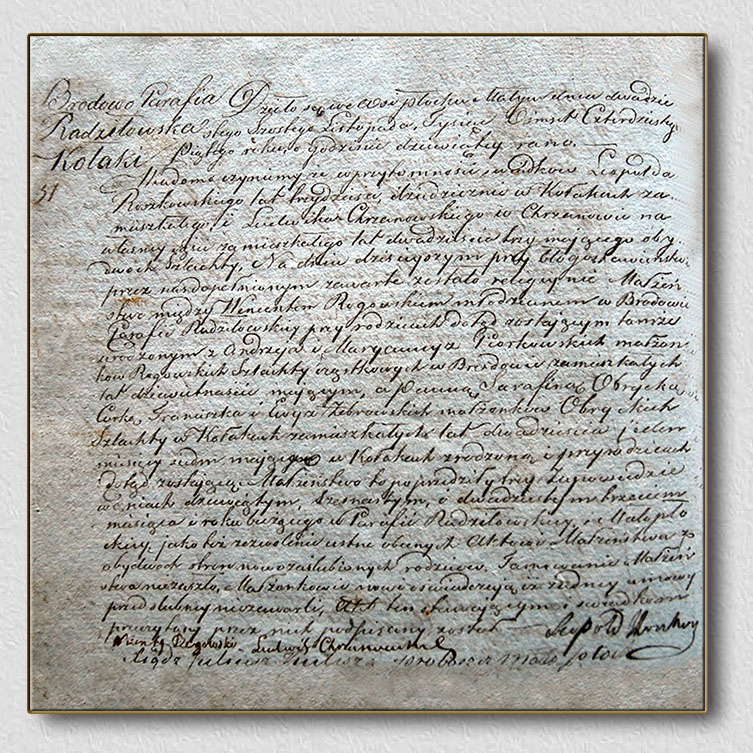 Brodowo Parafia Działo się we wsi Płocku Małym dnia dwudzie
Radziłowska stego szostego Listopada, Tysiąc Ośmset Czterdziesty
Kołaki Piątego roku, o godzinie dziewiąty rano. —
51 Wiadomo czynimy że w przytomności świadków Leopolda
Roszkowskiego lat trzydzieści, dziedzica w Kołakach za-
mieszkałego, i Ludwika Chrzanowskiego w Chrzanowie na
własny zamieszkałego lat dwadzieście trzy mającego oby-
dwoch Szlachty, Na dniu dzisiejszym przy błogosławieństwie
przez nas dopełnionym zawarte zostało religijne Małżeń
stwo między Wincentym Rogowskim młodzianem w Brodowie
Parafii Radziłowskiej przy rodzicach dotąd zostającym tamże
urodzonym z Andrzeja i Maryanny z Piorkowskich małżon
ków Rogowskich Szlachty cząstkowych w Brodowie zamieszkałych
lat dziewiętnaście mającym, a Panną Sarafiną Obrycką
Corką Franciszka i Ewy z Zebrowskich małżonków Obryckich
Szlachty w Kołakach zamieszkałych lat dwadzieścia jeden
miesięcy siedm mającą w Kołakach zrodzoną i przy rodzicach
dotąd zostającą. Małżeństwo to poprzedziły trzy zapowiedzie
w dniach dziewiątym, szesnastym, i dwudziestym trzecim
miesiąca i roku bieżącego w Parafii Radziłowskiej, i Małopło
ckiej, jako też zezwolenie ustne obecnych Aktowi Małżeństwa z
obydwoch stron nowozaślubionych rodziców. Tamowanie Małżeń
stwa niezaszło, Małżonkowie nowi oświadczają iż żadnej umowy
przedślubnej niezawarli, Akt ten stawającym i świadkom
przeczytany przez nich podpisany został — Leopold Roszkowski
Wincenty Rogowski Ludwik Chrzanowski
Xiądz Juliusz proboszcz Małopłocki